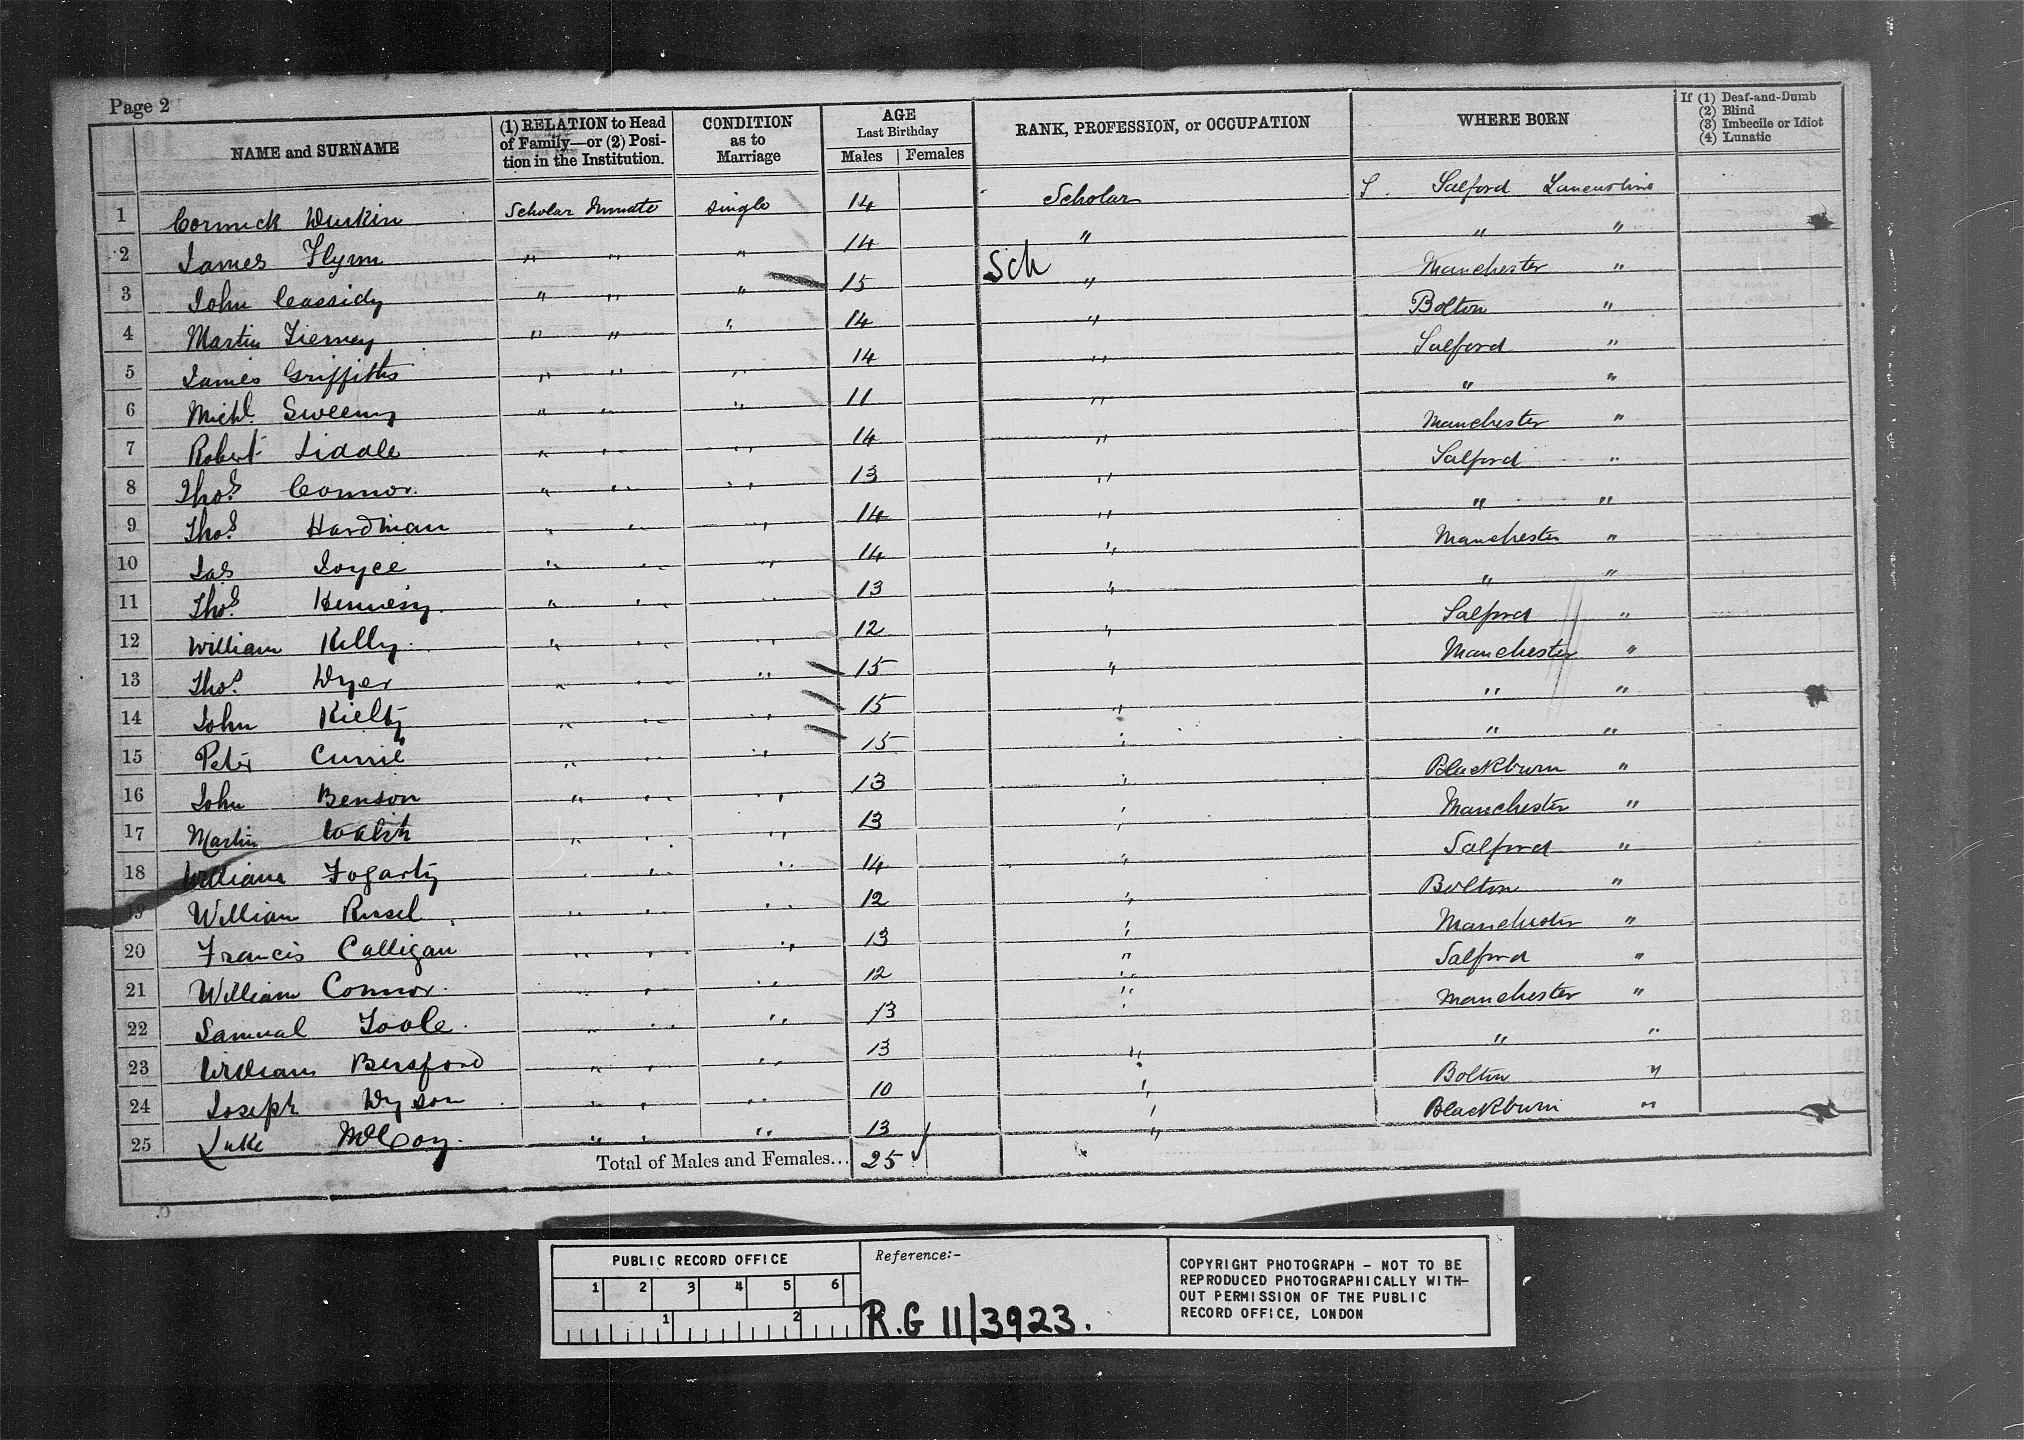 Page 2
NAME and SURNAME
(1) RELATION to Head of Family—or (2) Position in the Institution.
CONDITION as to Marriage
AGE Last Birthday
Males Females
RANK, PROFESSION, or OCCUPATION
WHERE BORN
If (1) Deaf-and-Dumb
(2) Blind
(3) Imbecile or Idiot
(4) Lunatic
1 Cormick Durkin Scholar Inmate single 14 Scholar Salford Lancashire
2 James Flynn " " " 14 " " "
Sch
3 John Cassidy " " " 15 " Manchester "
4 Martin Tierney " " " 14 " Bolton "
5 James Griffiths " " " 14 " Salford "
6 Michl. Sweeny " " " 11 " " "
7 Robert Liddle " " " 14 " Manchester "
8 Thos. Connor. " " " 13 " Salford "
9 Thos. Hardman " " " 14 " " "
10 Jas Joyce " " " 14 " Manchester "
11 Thos. Hennesy. " " " 13 " " "
12 William Kelly. " " " 12 " Salford "
13 Thos. Dyer " " " 15 " Manchester "
14 John Kielty " " " 15 " " "
15 Peter Currie " " " 15 " " "
16 John Benson " " " 13 " Blackburn "
17 Martin Walsh " " " 13 " Manchester "
18 William Fogarty " " " 14 " Salford "
19 William Russel " " " 12 " Bolton "
20 Francis Calligan " " " 13 " Manchester "
21 William Connor. " " " 12 " Salford "
22 Samual Toole. " " " 13 " Manchester "
23 William Bersford " " " 13 " " "
24 Joseph Dyson " " " 10 " Bolton "
25 Luke McCoy. " " " 13 " Blackburn "
Total of Males and Females... 25
PUBLIC RECORD OFFICE
1 2 3 4 5 6
1 2
Reference:-
R.G 11/3923.
COPYRIGHT PHOTOGRAPH – NOT TO BE
REPRODUCED PHOTOGRAPHICALLY WITH-
OUT PERMISSION OF THE PUBLIC
RECORD OFFICE, LONDON